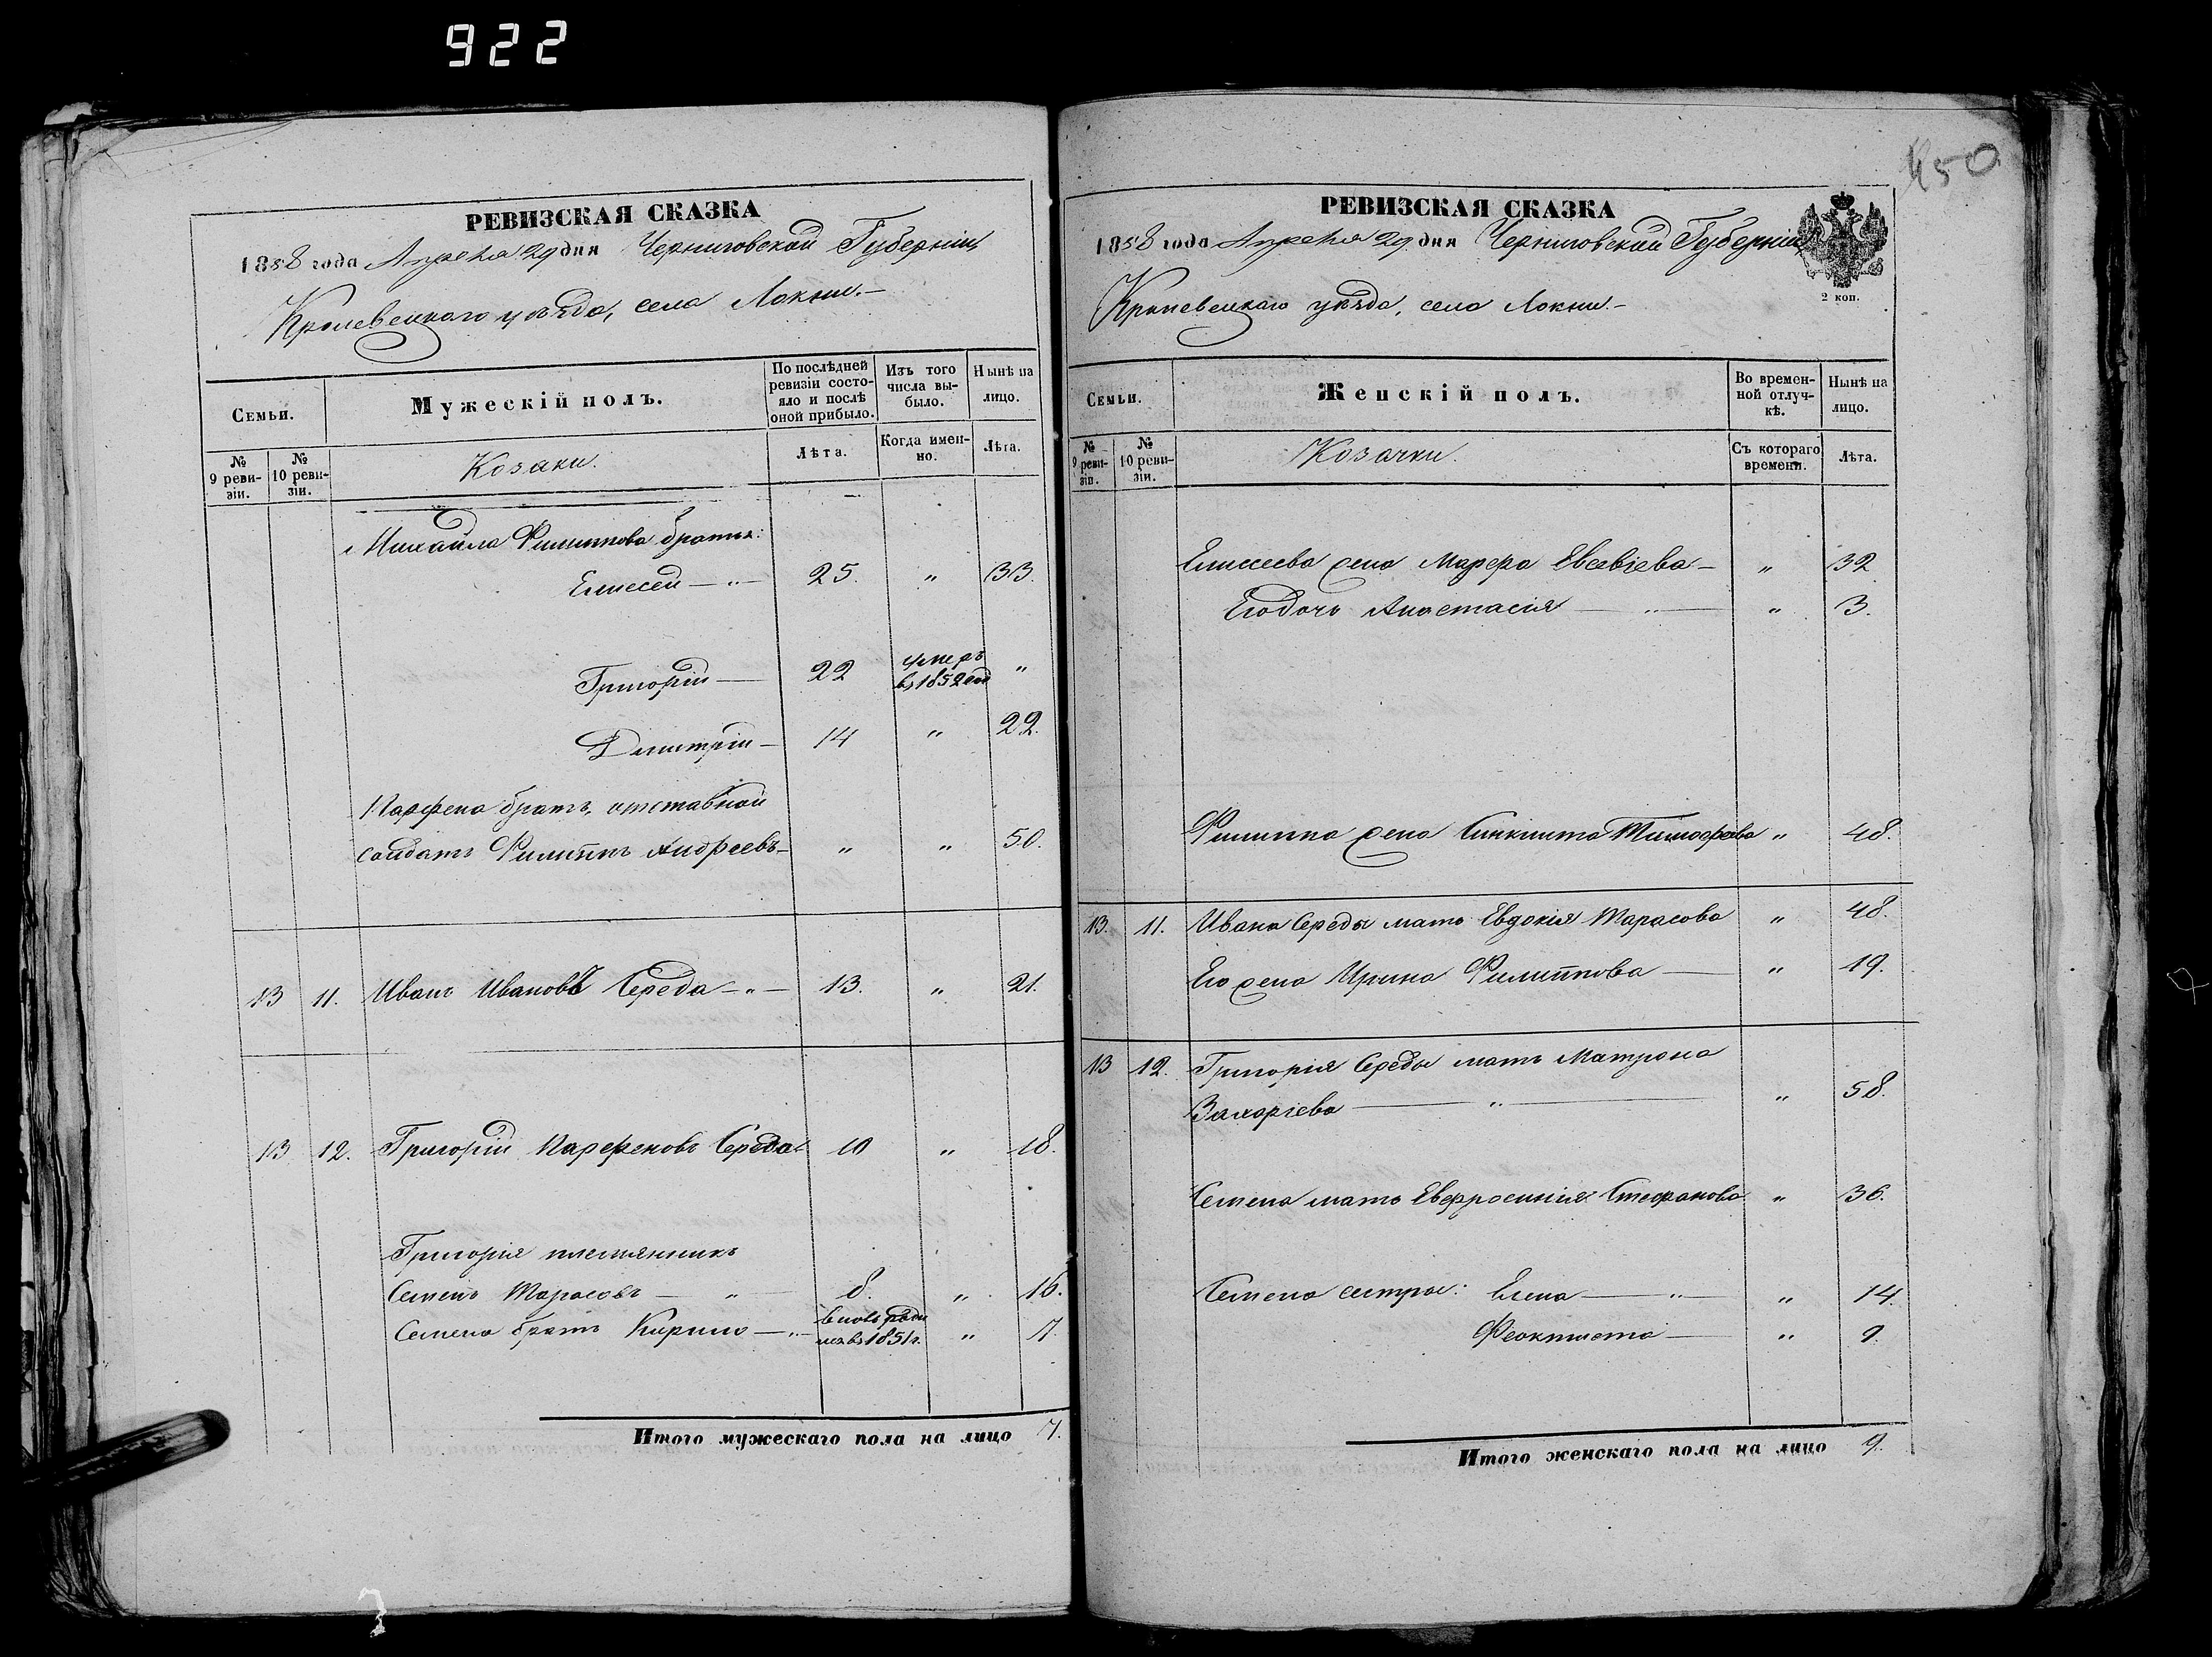 922
РЕВИЗСКАЯ СКАЗКА
1858 года Апреля 29 дня Черниговской Губерніи
Кролевецкаго уѣзда, села Локни.—
Семьи.
Мужескій полъ.
По послѣдней ревизіи состояло и послѣ оной прибыло.
Изъ того числа выбыло.
Нынѣ на лицо.
№ 9 ревизіи.
№ 10 ревизіи.
Козаки.
Лѣта.
Когда именно.
Лѣта.
Михайла Филиппова братья:
Елисей — „ — 25. „ 33.
Григорій — 22 умеръ въ 1852 год „
Дмитрій — 14 „ 22.
Парфена братъ, отставной
солдатъ Филиппъ Андреевъ — „ „ 50.
13 11. Иванъ Ивановъ Середа — „ — 13. „ 21.
13 12. Григорій Парфеновъ Середа 10 „ 18.
Григорія племянникъ
Семенъ Тарасовъ — „ — 8. „ 16.
Семена братъ Кирило — „ — вновь родился въ 1851 г. „ 7.
Итого мужескаго пола на лицо 7.
450
РЕВИЗСКАЯ СКАЗКА
1858 года Апреля 29. дня Черниговской Губерніи,
2 коп.
Кролевецкаго уѣзда, села Локни.—
Семьи.
Женскій полъ.
Во временной отлучкѣ.
Нынѣ на лицо.
№ 9 ревизіи.
№ 10 ревизіи.
Козачки.
Съ котораго времени.
Лѣта.
Елисеева жена Марфа Евсевіева — „ 32
Его дочь Анастасія — „ — „ 3.
Филиппа жена Тимофеева „ 48.
13. 11. Ивана Середы мать Евдокія Тарасова „ 48.
Его жена Ирина Филиппова — „ 19.
13 12. Григорія Середы мать Матрона
Захаріева — „ — „ 58.
Семена мать Евфросинія Стефанова „ 36.
Семена сестры: Елена — „ — „ 14.
Феоктиста — „ 9.
Итого женскаго пола на лицо 9.